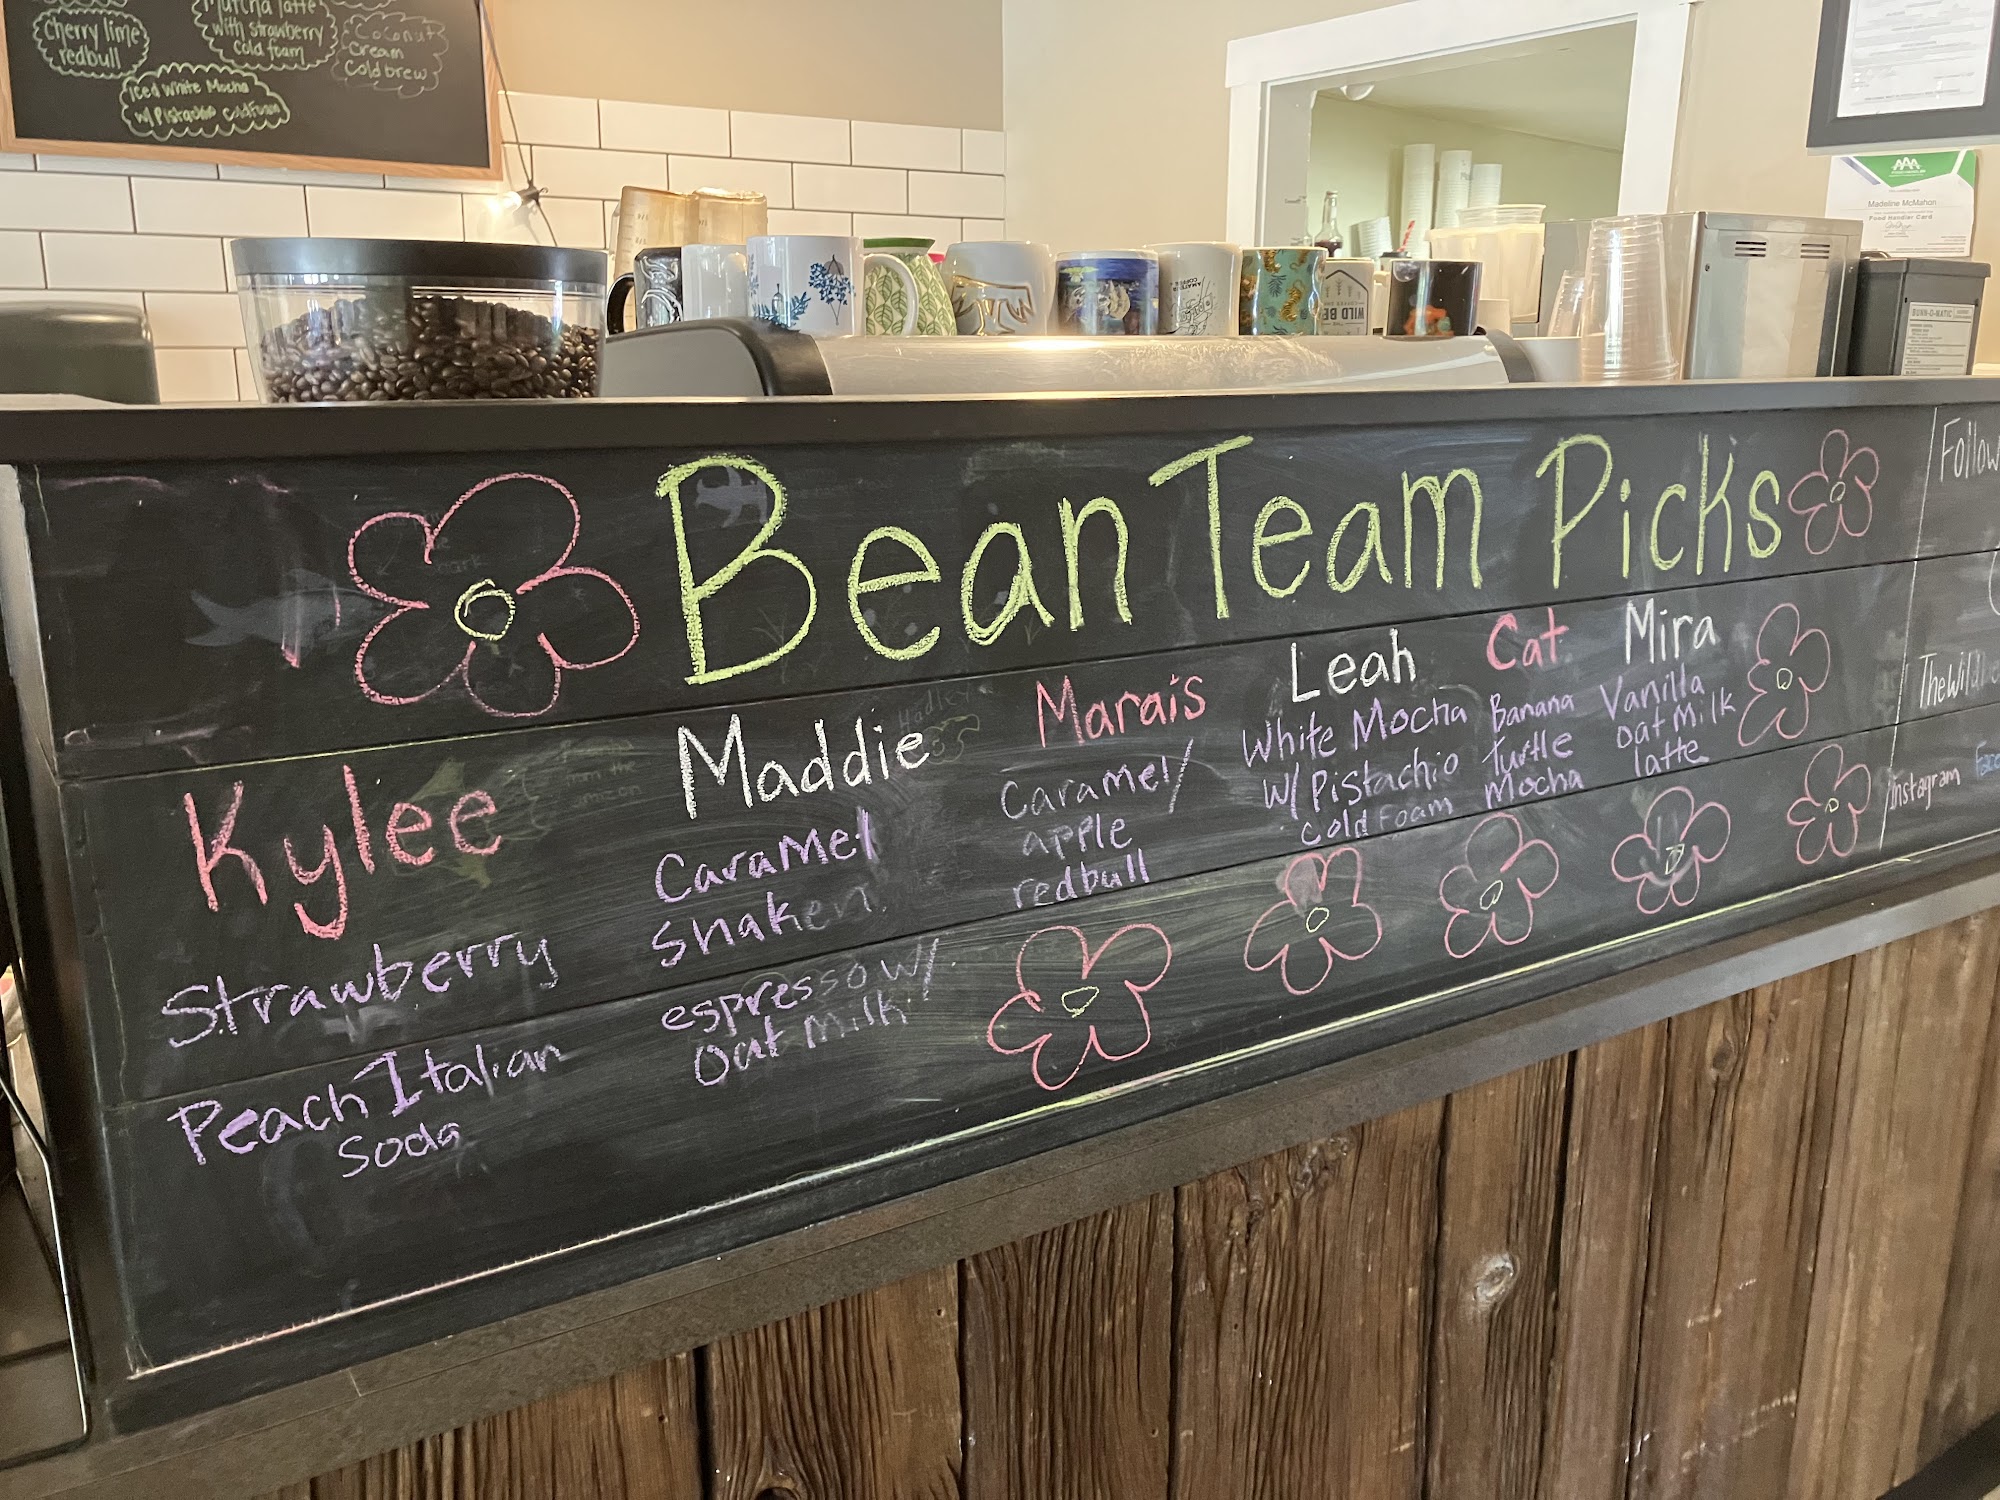 Matcha latte
with strawberry
cold foam
cherry lime
redbull
Coconut
Cream
Cold brew
iced white Mocha
w/ Pistachio cold foam
Madeline McMahon
Food Handler Card
WILD BE
BUNN-O-MATIC
Bean Team Picks
Kylee
Strawberry
Peach Italian
soda
Maddie
Caramel
shaken
espresso w/
oat milk
Hadley
from the
amazon
Marais
Caramel/
apple
redbull
Leah
White Mocha
w/ Pistachio
cold Foam
Cat
Banana
Turtle
Mocha
Mira
Vanilla
oat milk
latte
Follow
TheWildBe
Instagram Face